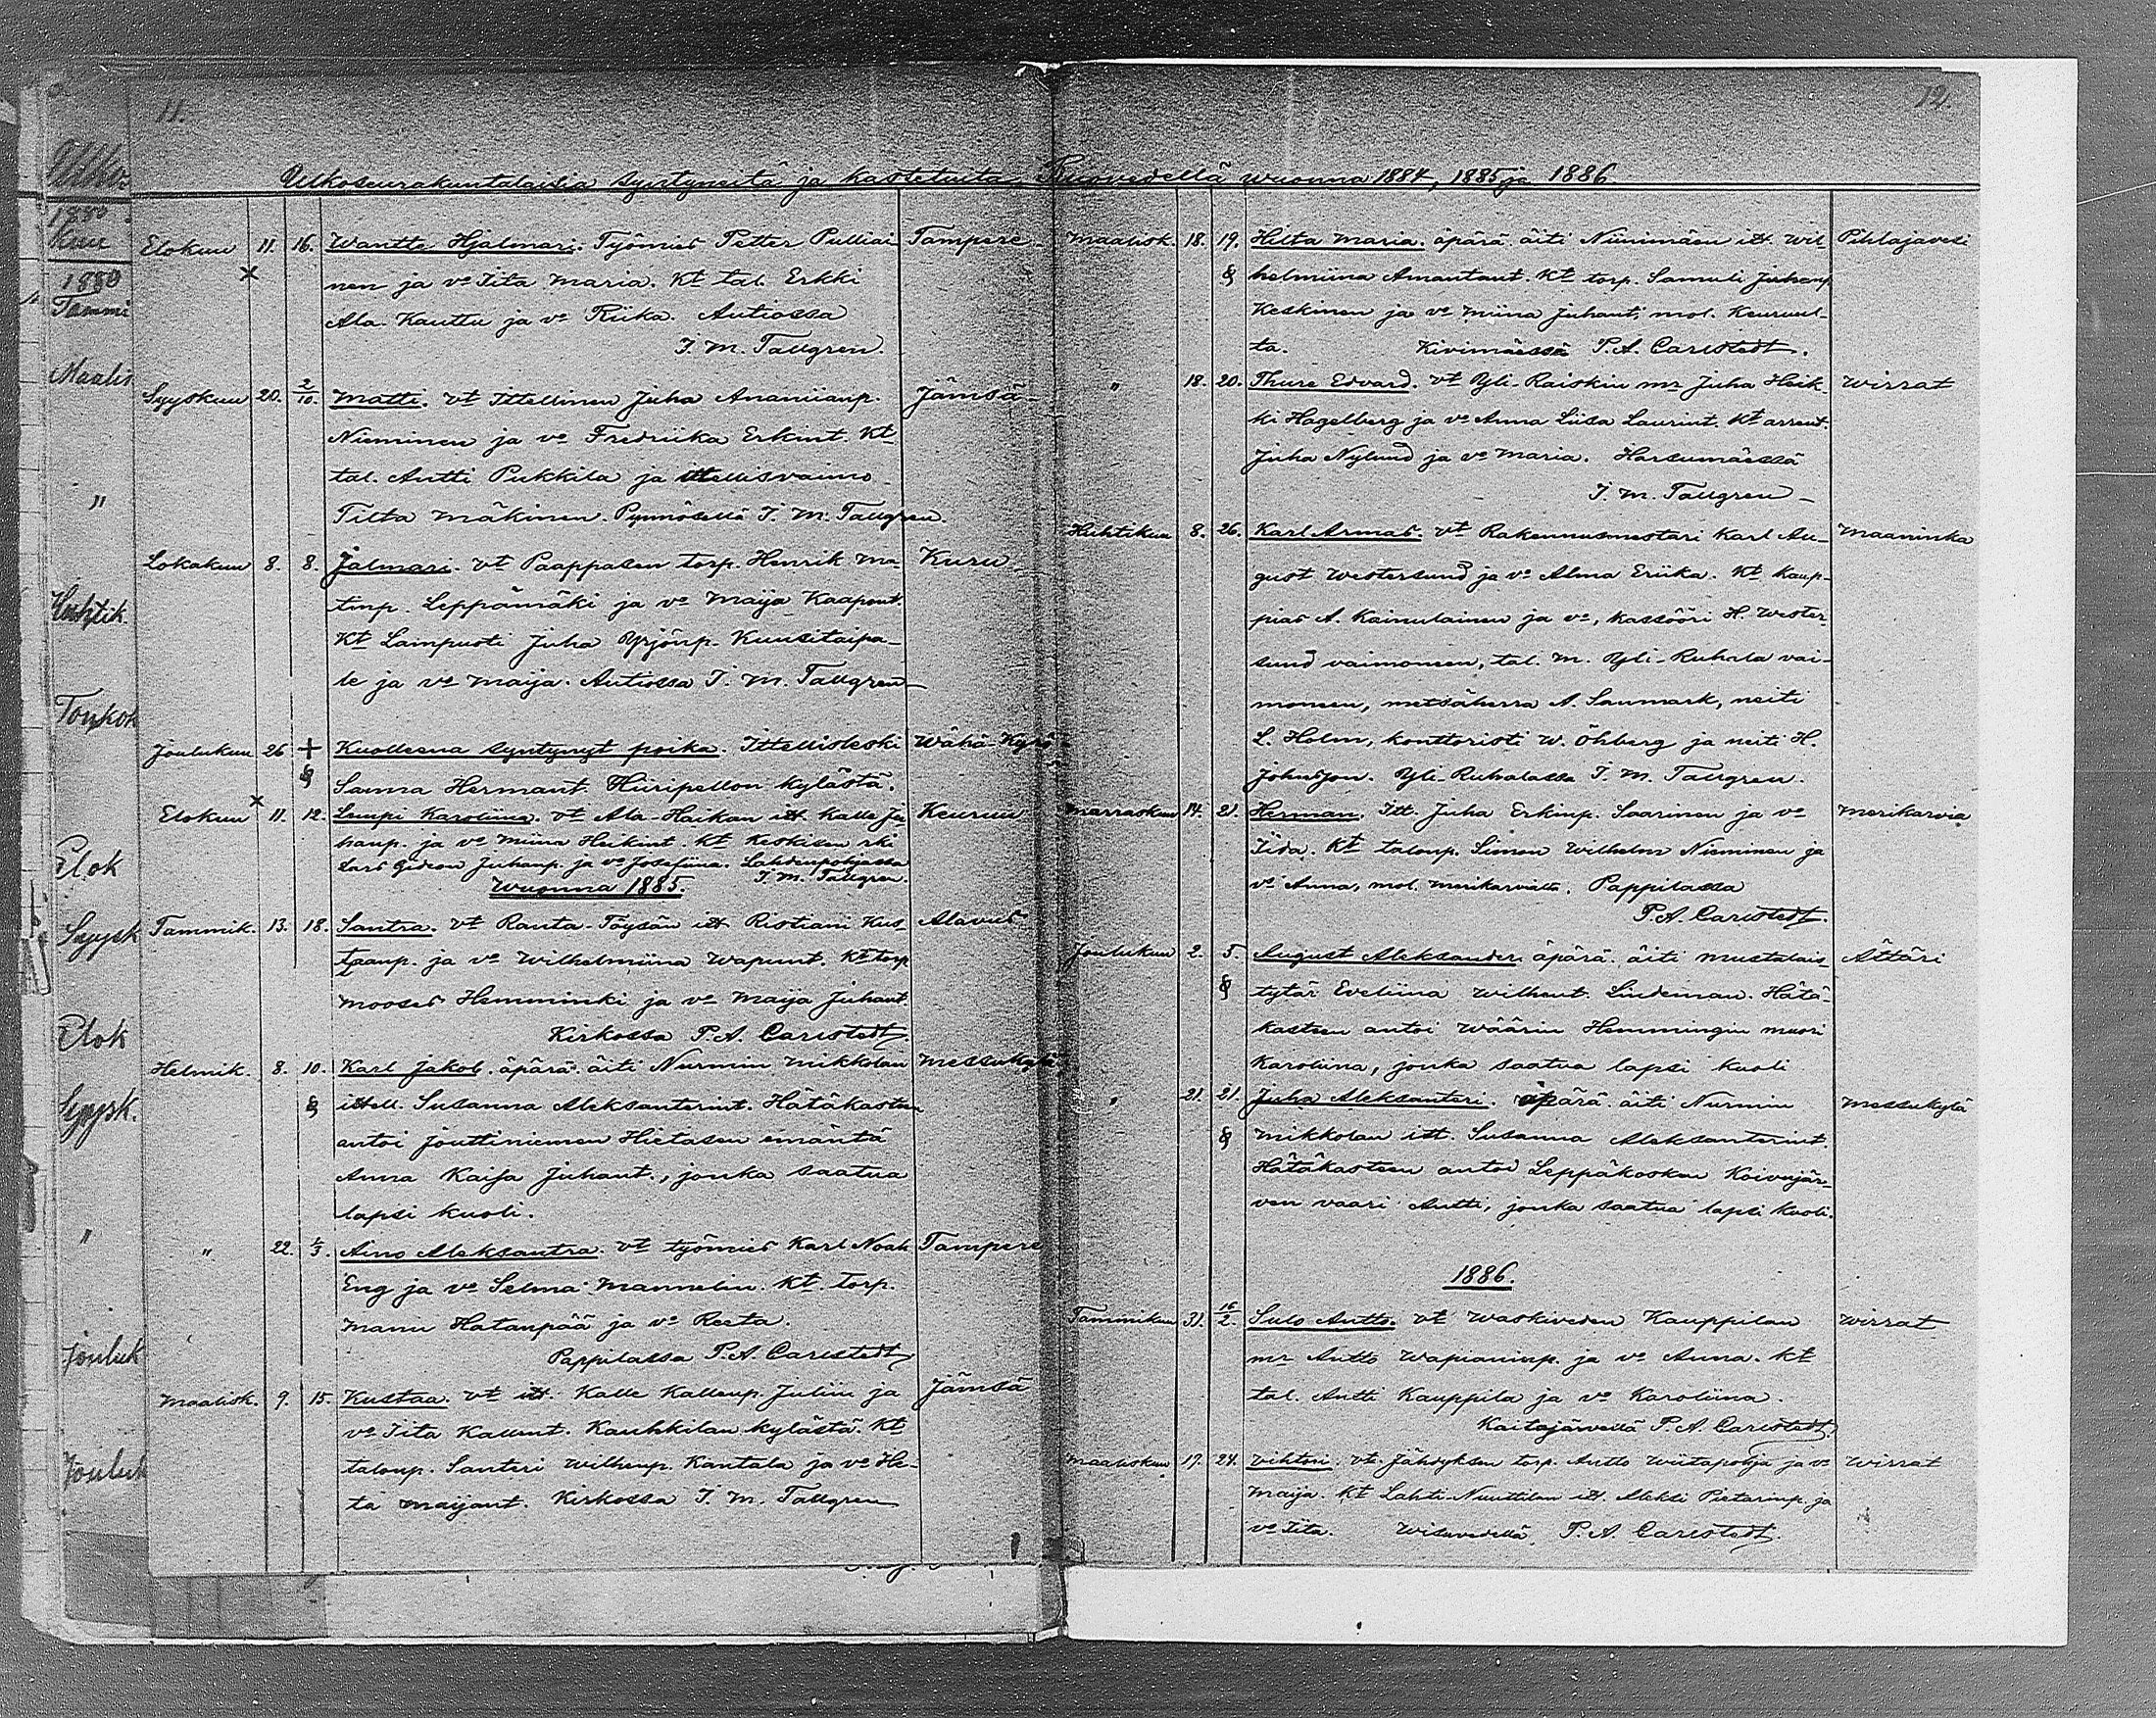 11.
12.
Ulkoseurakuntalaisia syntyneitä ja kastetuita Ruovedellä wuonna 1884, 1885 ja 1886.
Elokuu 11. 16. Wantte Hjalmari. Työmies Petter Pulliai Tampere
nen ja vo Iita Maria. Kt tal. Erkki
Ala-Kauttu ja vo Riika. Autiossa
I. M. Tallgren.
Syyskuu 20. 2/10. Matti. vt Ittellinen Juha Ananiianp. Jämsä
Nieminen ja vo Fredriika Erkint. Kt
tal. Antti Pukkila ja ittellisvaimo
Tilta Mäkinen. Pynnösellä I. M. Tallgren.
Lokakuu 8. 8. Jalmari. vt Paappasen torp. Henrik Ma- Kuru
tinp. Leppämäki ja vo Maija Kaapont.
Kt Lampuoti Juha Yrjönp. Kuusitaipa-
le ja vo Maija. Autiossa I. M. Tallgren
Joulukuu 26 + Kuolleena syntynyt poika. Ittellisleski Wähä-Kyrö
§ Sanna Hermant. Hiiripellon kylästä.
Elokuu 11. 12. Lempi Karoliina. vt Ala-Haikan itt Kalle Ju Keuruu
hanp. ja vo Miina Heikint. Kt Keskisen rki
Lars Gideon Juhanp. ja vo Josefiina. Lahdenpohjassa
I. M. Tallgren.
Wuonna 1885.
Tammik. 13. 18. Santra. vt Ranta-Töysän itt Ristiani Kus- Alavus
taanp. ja vo Wilhelmiina Wapunt. Kt torp
Mooses Hemminki ja vo Maija Juhant.
Kirkossa P. A. Carlstedt.
Helmik. 8. 10. Karl Jakob. äpärä. äiti Nurmin Mikkolan Messukylä
§ ittell. Susanna Aleksanterint. Hätäkasteen
antoi Jouttiniemen Hietasen emäntä
Anna Kaisa Juhant., jonka saatua
lapsi kuoli.
" 22. 1/3. Aino Aleksantra. vt työmies Karl Noah Tampere
Eng ja vo Selma Mannelin. Kt. torp.
Manu Hatanpää ja vo Reeta.
Pappilassa P. A. Carlstedt
Maalisk. 9. 15. Kustaa. vt itt. Kalle Kallenp. Juliin ja Jämsä
vo Iita Kallent. Kauhkilan kylästä. Kt
talonp. Santeri Wilhenp. Kantala ja vo He-
ta Maijant. Kirkossa I. M. Tallgren
Maalisk. 18. 19. Hilta Maria. äpärä. äiti Niinimäen itt. Wil- Pihlajavesi
§ helmiina Amantant. Kt torp. Samuli Juhanp
Keskinen ja vo Miina Juhant, mol. Keuruul-
ta. Kivimäessä P. A. Carlstedt.
" 18. 20. Thure Edvard. vt Yli-Raiskin mr Juha Heik- Wirrat
ki Hagelberg ja vo Anna Liisa Laurint. Kt arrent.
Juha Nylund ja vo Maria. Harsumäessä
I. M. Tallgren
Huhtikuu 8. 26. Karl Armas. vt Rakennusmestari Karl Au- Maaninka
gust Westersund ja vo Alma Eriika. Kt Kaup-
pias A. Kainulainen ja vo, kassööri H. Wester-
sund vaimoneen, tal. M. Yli-Ruhala vai-
moneen, metsäherra A. Sanmark, neiti
L. Holm, konttoristi W. Öhberg ja neiti H.
Johnsson. Yli-Ruhalassa I. M. Tallgren.
Marraskuu 14. 21. Herman. Itt. Juha Erkinp. Saarinen ja vo Merikarvia
Iida. Kt talonp. Simon Wilhelm Nieminen ja
vo Anna, mol. Merikarvialta. Pappilassa
P. A. Carlstedt.
Joulukuu 2. 5. August Aleksander. äpärä. äiti mustalais- Ättäri
§ tytär Eveliina Wilhent. Lindeman. Hätä-
kasteen antoi Wäärin Hemmingin muori
Karoliina, jonka saatua lapsi kuoli
" 21. 21. Juha Aleksanteri. äpärä. äiti Nurmin Messukylä
§ Mikkolan itt. Susanna Aleksanterint.
Hätäkasteen antoi Leppäkosken Koivujär-
ven vaari Antti, jonka saatua lapsi kuoli.
1886.
Tammikuu 31. 16/2. Sulo Antto. vt Waskiveden Kauppilan Wirrat
mr Antto Wapianinp. ja vo Anna. Kt
tal. Antti Kauppila ja vo Karoliina.
Kaitajärvellä P. A. Carlstedt
Maaliskuu 17. 24. Vihtori. vt. Jähdyksen torp. Antto Wiitapohja ja vo Wirrat
Maija. Kt Lahti-Nuuttilan itt. Aleksi Pietarinp. ja
vo Iita. Wisuvedellä P. A. Carlstedt.
1880
Kuu
1880
Tammi
Maalis
"
Huhtik.
Toukok
Elok
Syysk
Elok
Syysk.
"
Jouluk
Jouluk